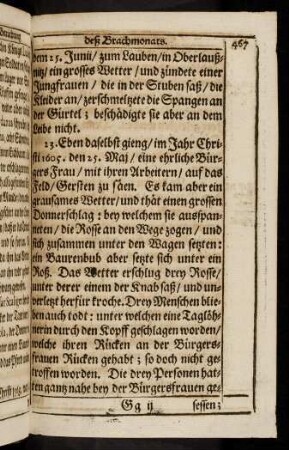 deß Brachmonats. 467
dem 25. Junii / zum Lauben / in Oberlauß-
nitz / ein grosses Wetter / und zündete einer
Jungfrauen / die in der Stuben saß / die
Kleider an / zerschmeltzete die Spangen an
der Gürtel ; beschädigte sie aber an dem
Leibe nicht.
23. Eben daselbst gieng / im Jahr Chri-
sti 1605. den 25. Maj / eine ehrliche Bür-
gers Frau / mit ihren Arbeitern / auf das
Feld / Gersten zu säen. Es kam aber ein
grausames Wetter / und thät einen grossen
Donnerschlag : bey welchem sie ausspan-
neten / die Rosse an den Wege zogen / und
sich zusammen unter den Wagen setzten :
ein Baurenbub aber setzte sich unter ein
Roß. Das Wetter erschlug drey Rosse /
unter derer einem der Knab saß / und un-
verletzt herfür kroche. Drey Menschen blie-
ben auch todt : unter welchen eine Taglöh-
nerin durch den Kopff geschlagen worden /
welche ihren Rücken an der Bürgers-
frauen Rücken gehabt ; so doch nicht ge-
troffen worden. Die drey Personen hat-
ten gantz nahe bey der Bürgersfrauen ge-
Gg ij sessen ;